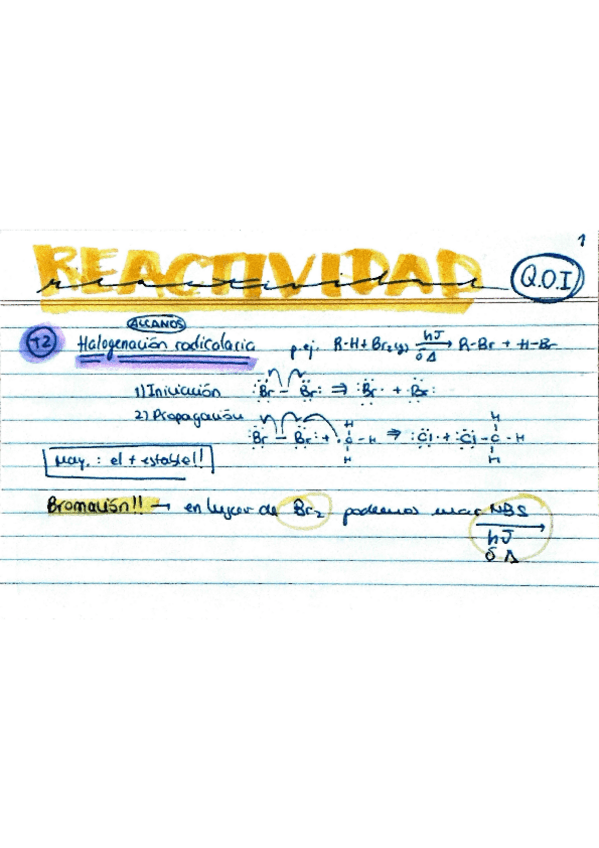 1
REACTIVIDAD
reactividad
Q.O.I
ALCANOS
T2 Halogenación radicalaria p.ej. R-H + Br₂(g) hν ó Δ → R-Br + H-Br
1) Iniciación :Br – Br: ⇒ :Br· + Br:
2) Propagación :Br – Br: + ·C-H H H ⇒ :Cl· + :Cl-C-H H H
May.: el + estable!!
Bromación!! → en lugar de Br₂ podemos usar NBS
hν
ó Δ